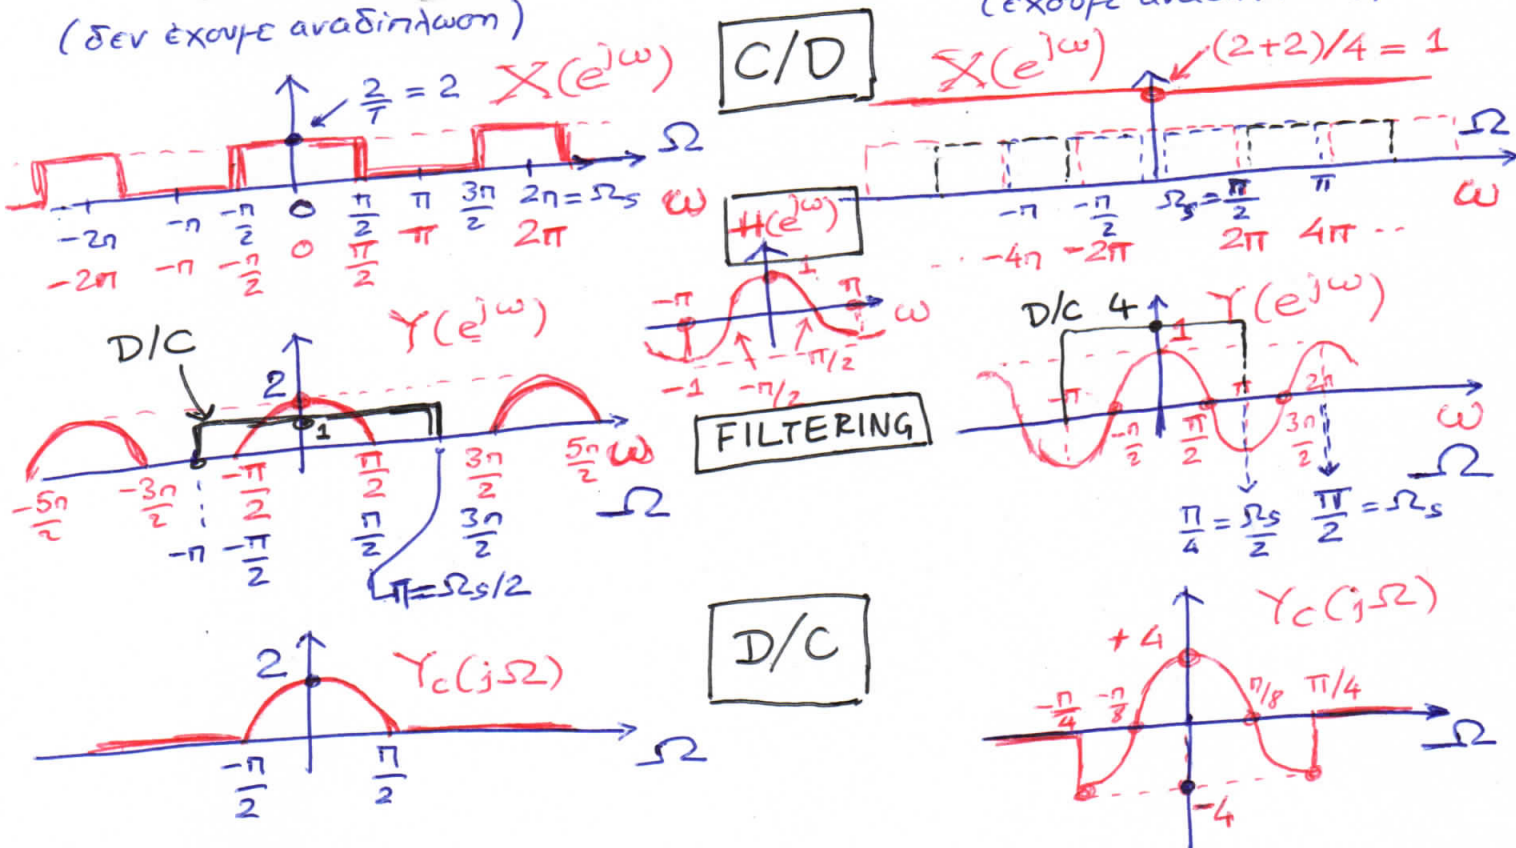 (δεν έχουμε αναδίπλωση)
C/D
2/T = 2
X(e^{jω})
Ω
-2π -π -π/2 0 π/2 π 3π/2 2π = Ωs
ω
-2π -π -π/2 0 π/2 π 2π
X(e^{jω})
(2+2)/4 = 1
Ω
-π -π/2 Ωs = π/2 π
ω
... -4π -2π 2π 4π ...
H(e^{jω})
1
-π π
ω
-1 -π/2 π/2
D/C
Y(e^{jω})
2
1
-5π/2 -3π/2 -π/2 π/2 3π/2 5π/2 ω
-π -π/2 π/2 3π/2 Ω
π = Ωs/2
FILTERING
D/C 4
Y(e^{jω})
1
-π -π/2 π/2 π 3π/2 2π
ω
Ω
π/4 = Ωs/2 π/2 = Ωs
2
Yc(jΩ)
-π/2 π/2
Ω
D/C
Yc(jΩ)
+4
-π/4 -π/8 π/8 π/4
Ω
-4